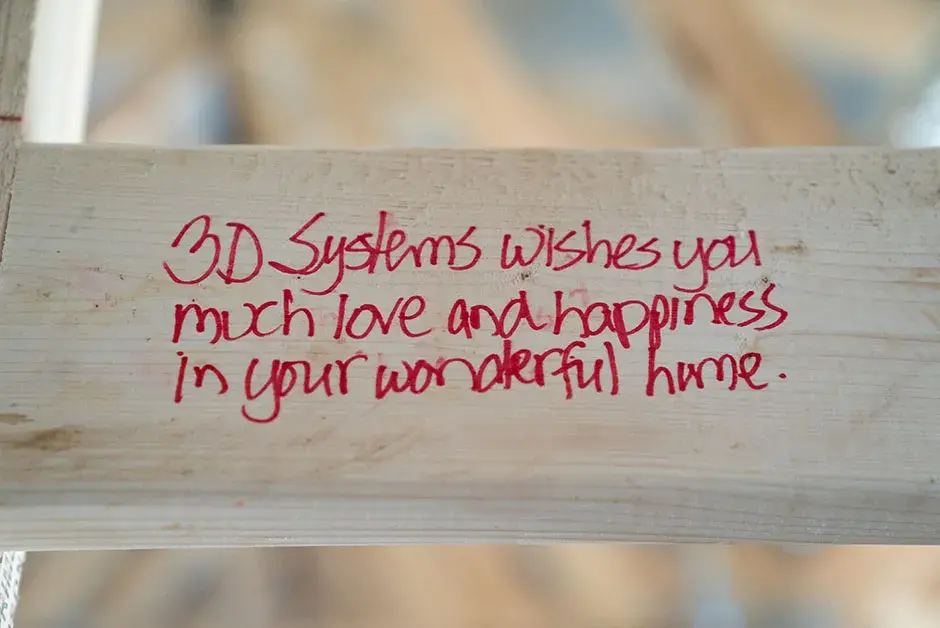 3D Systems wishes you
much love and happiness
in your wonderful home.